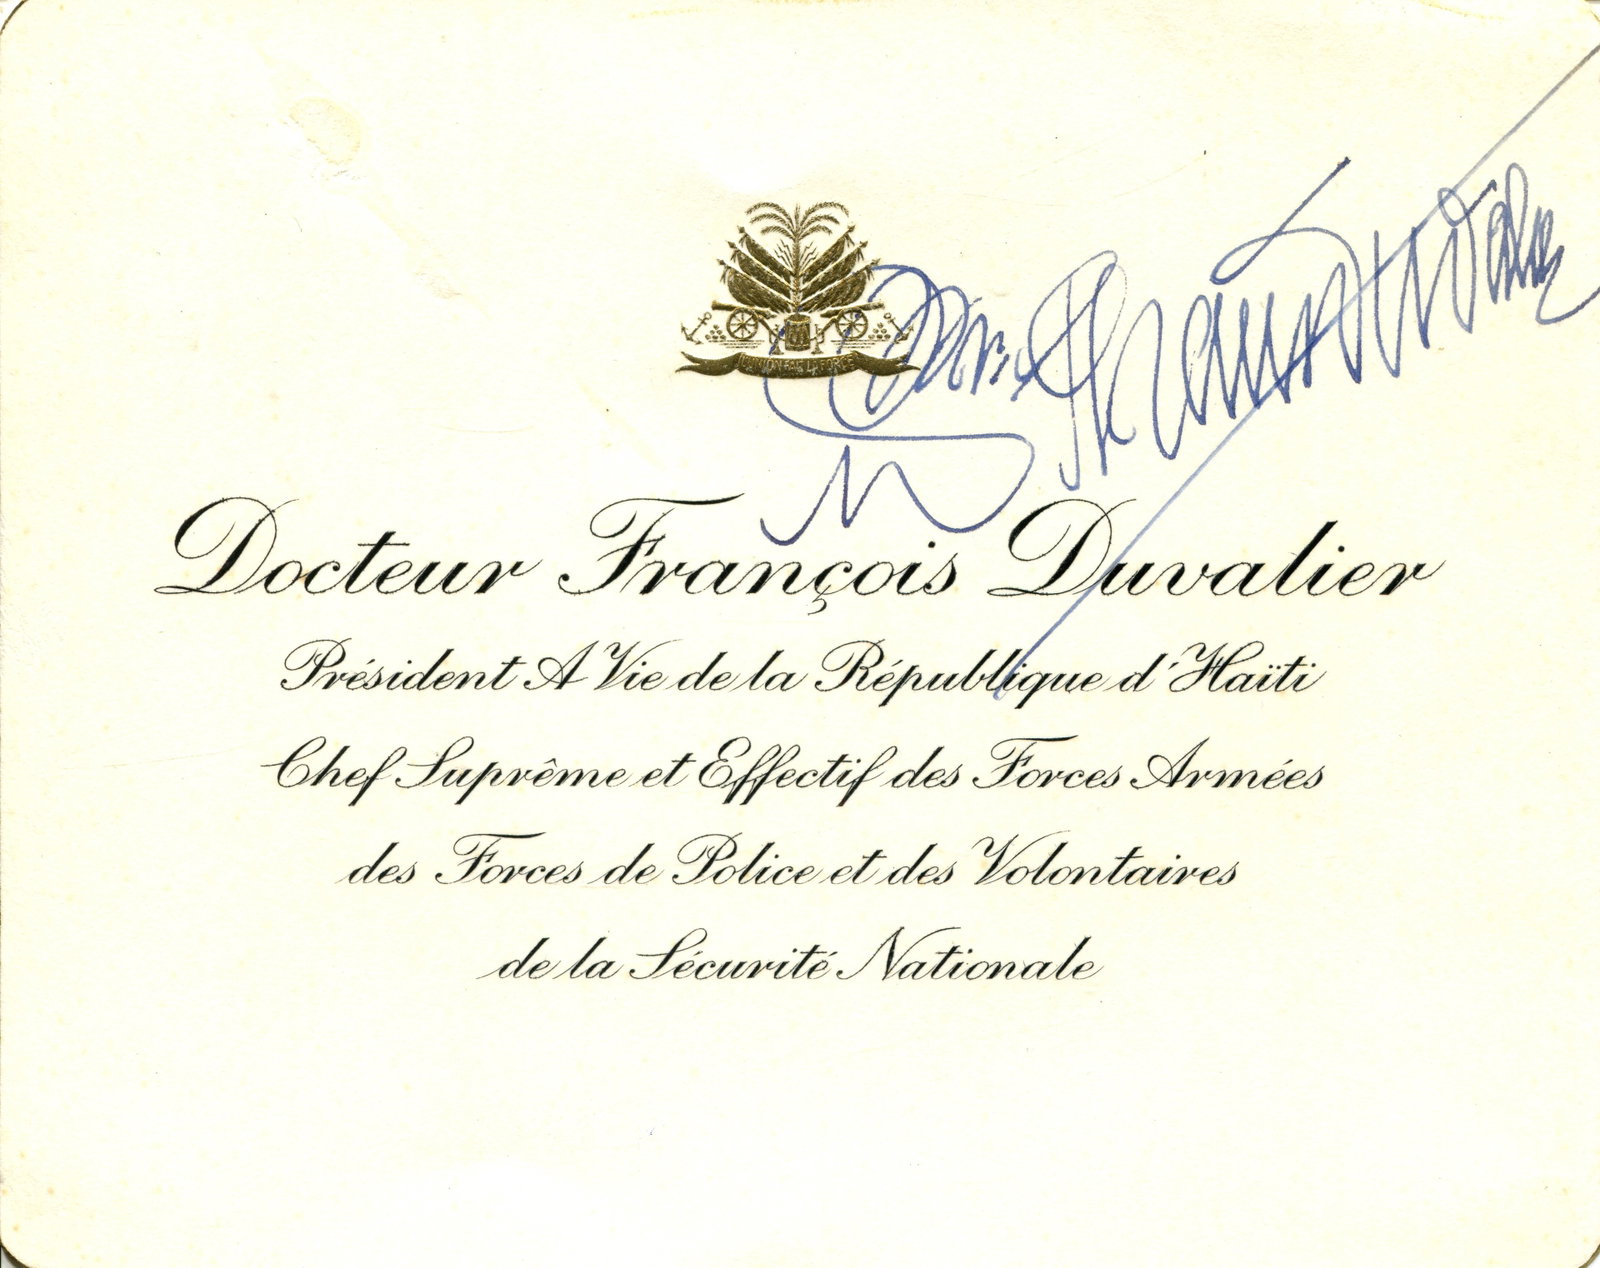 L'UNION FAIT LA FORCE
Docteur François Duvalier
Président A Vie de la République d'Haïti
Chef Suprême et Effectif des Forces Armées
des Forces de Police et des Volontaires
de la Sécurité Nationale